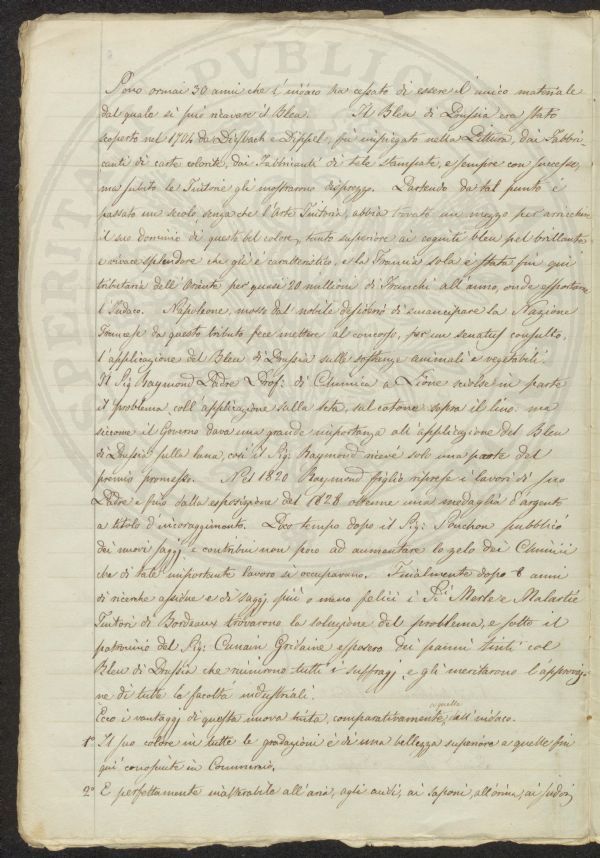 Sono ormai 30 anni che l'indaco ha cessato di essere l'unico materiale
dal quale si può ricavare il Bleu. Il Bleu di Prussia era stato
scoperto nel 1704 da Diesbach e Dippel, fu impiegato nella Pittura, dai Fabbri-
canti di carte colorite, dai Fabbricanti di tele stampate, e sempre con successo,
ma subito le Tintorie gli mostrarono disprezzo. Partendo da tal punto è
passato un secolo senza che l'Arte Tintoria, abbia trovato un mezzo per arricchire
il suo dominio di questo bel colore, tanto superiore ai cogniti bleu pel brillante
e vivace splendore che gli è caratteristico, e la Francia sola è stata fin qui
tributaria dell'Oriente per quasi 20 millioni di Franchi all'anno, onde asportarne
l'Indaco. Napoleone, mosso dal nobile desiderio di emancipare la Nazione
Francese da questo tributo fece mettere al concorso, per un senatus consulto,
l'applicazione del Bleu di Prussia sulle sostanze animali e vegetabili.
Il Sig. Raymond Padre Prof. di Chimica a Lione sciolse in parte
il problema, coll'applicazione sulla seta, sul cotone sopra il lino: ma
siccome il Governo dava una grande importanza all'applicazione del Bleu
di Prussia sulla lana, così il Sig. Raymond ricevé solo una parte del
premio promesso. Nel 1820 Raymond figlio riprese i lavori di suo
Padre e fino dalla esposizione del 1828 ottenne una medaglia d'argento
a titolo d'incoraggimento. Poco tempo dopo il Sig. Souchon pubblicò
dei nuovi saggj e contribuì non poco ad aumentare lo zelo dei Chimici
che di tale importante lavoro si occupavano. Finalmente dopo 6 anni
di ricerche assidue e di saggj più o meno felici i Sig.i Merle e Malartic
Tintori di Bordeaux trovarono la soluzione del problema, e sotto il
patrocinio del Sig. Cunain Gridaine esposero dei panni tinti col
Bleu di Prussia che riunirono tutti i suffragj, e gli meritarono l'approvazio-
ne di tutte le facoltà industriali.
Ecco i vantaggj di questa nuova tinta, comparativamente a quella dell'indaco.
1° Il suo colore in tutte le gradazioni è di una bellezza superiore a quelle fin
quì conosciute in Commercio.
2° È perfettamente inalterabile all'aria, agli acidi, ai saponi, all'orina, ai sudori